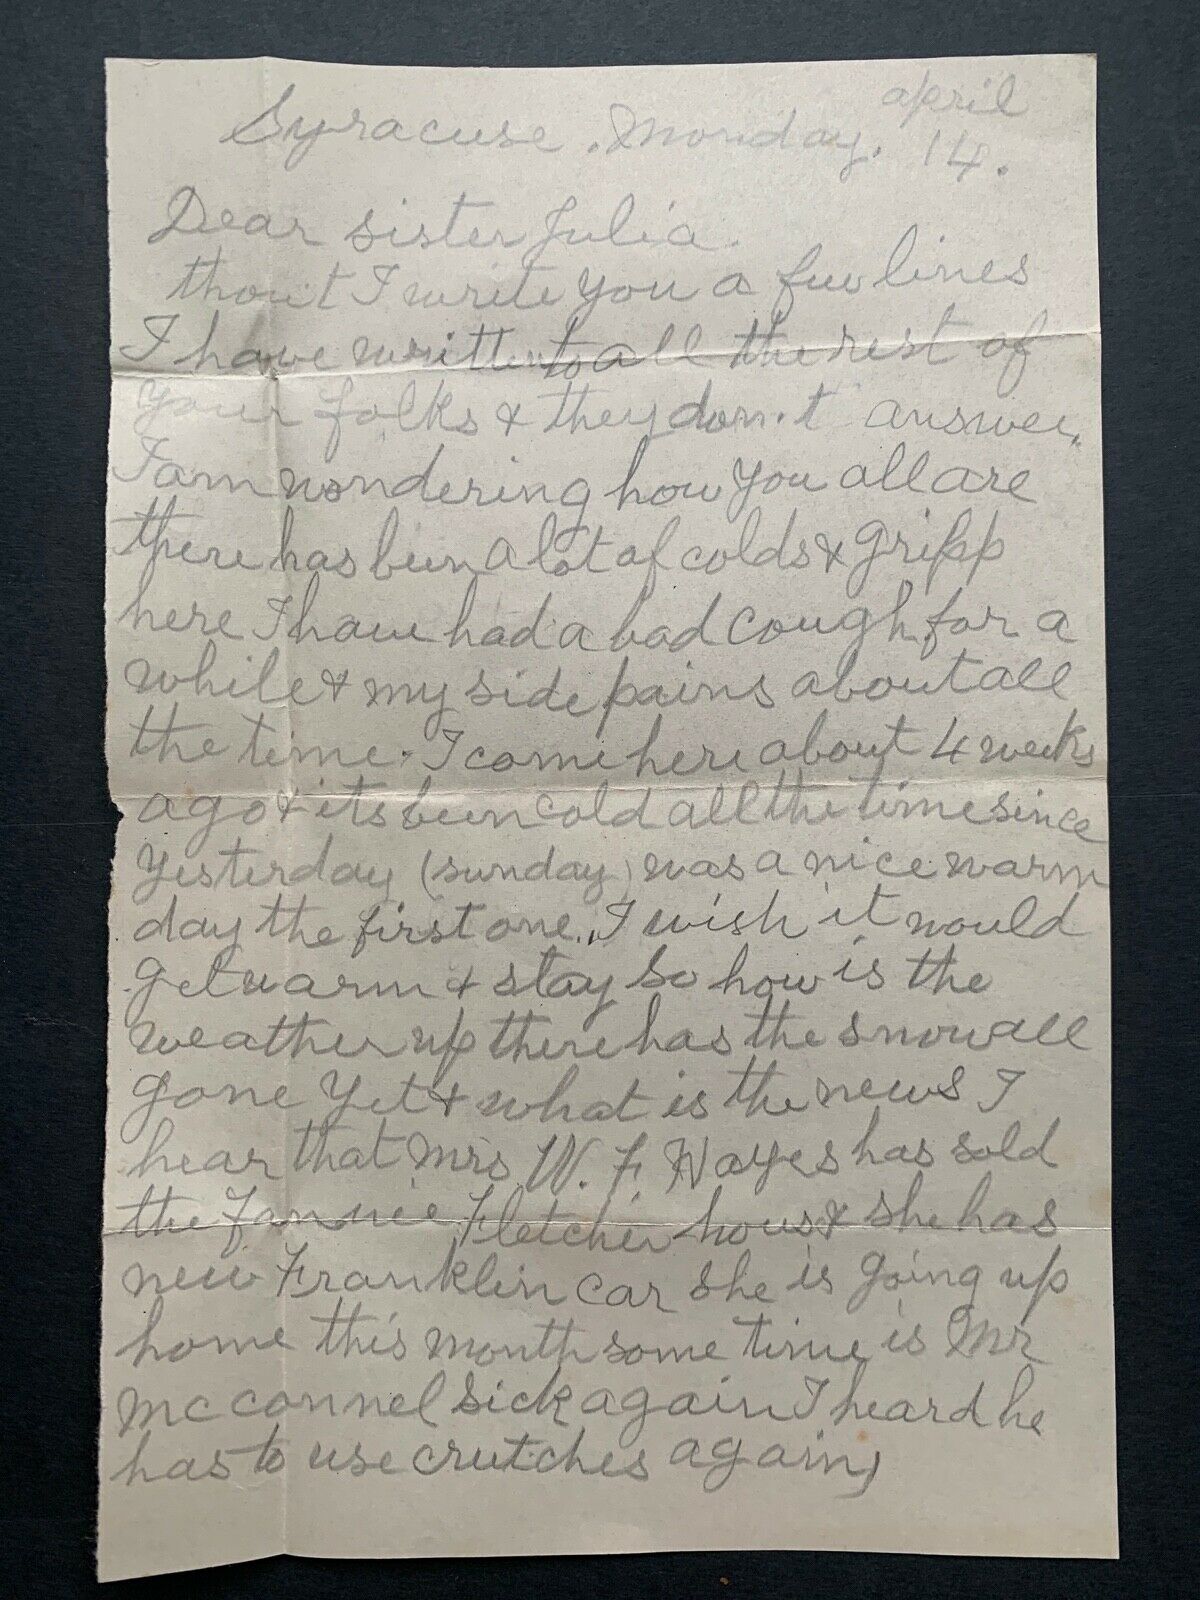 Syracuse. Monday. april 14.
Dear sister Julia.
thout I write you a few lines
I have written to all the rest of
your folks & they don.t answer.
I am wondering how you all are
there has been a lot of colds & gripp
here I have had a bad cough for a
while & my side pains about all
the time. I come here about 4 weeks
ago & its been cold all the time since
yesterday (sunday) was a nice warm
day the first one. I wish it would
get warm & stay so how is the
weather up there has the snow all
gone yet & what is the news I
hear that Mrs W. F. Hayes has sold
the Fannie Fletcher hous & she has
new Franklin car she is going up
home this month some time is Mr
McConnel sick again I heard he
has to use crutches again,